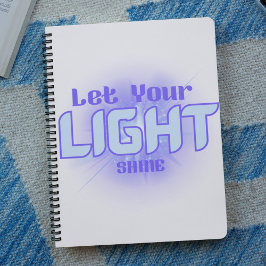 Let Your
LIGHT
SHINE